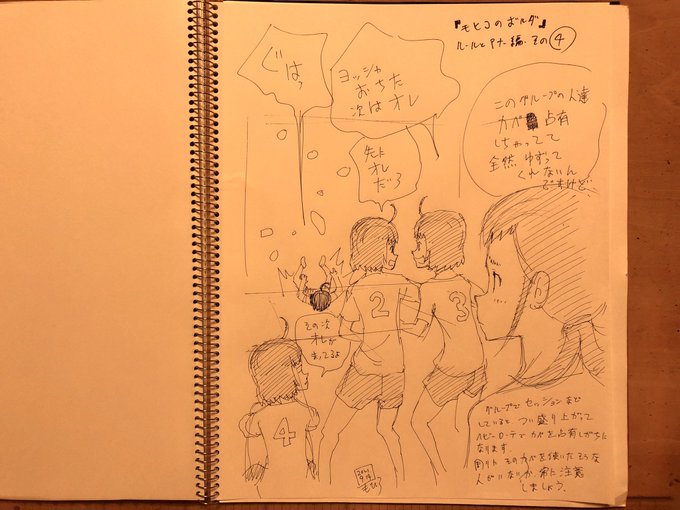 『モヒコのボルダ』
ルールとマナー編.その④
ぐはっ
ヨッシャ
おちた
次はオレ
先に
オレ
だろ
このグループの人達
カベ占有
しちゃってて
全然ゆずって
くれないん
ですけど
2
3
その次
オレが
4
グループでセッションなど
していると、つい盛り上がって
カベを占有しがちに
なります
周りにそのカベを使いたそうな
人がいないか常に注意
しましょう.
2021